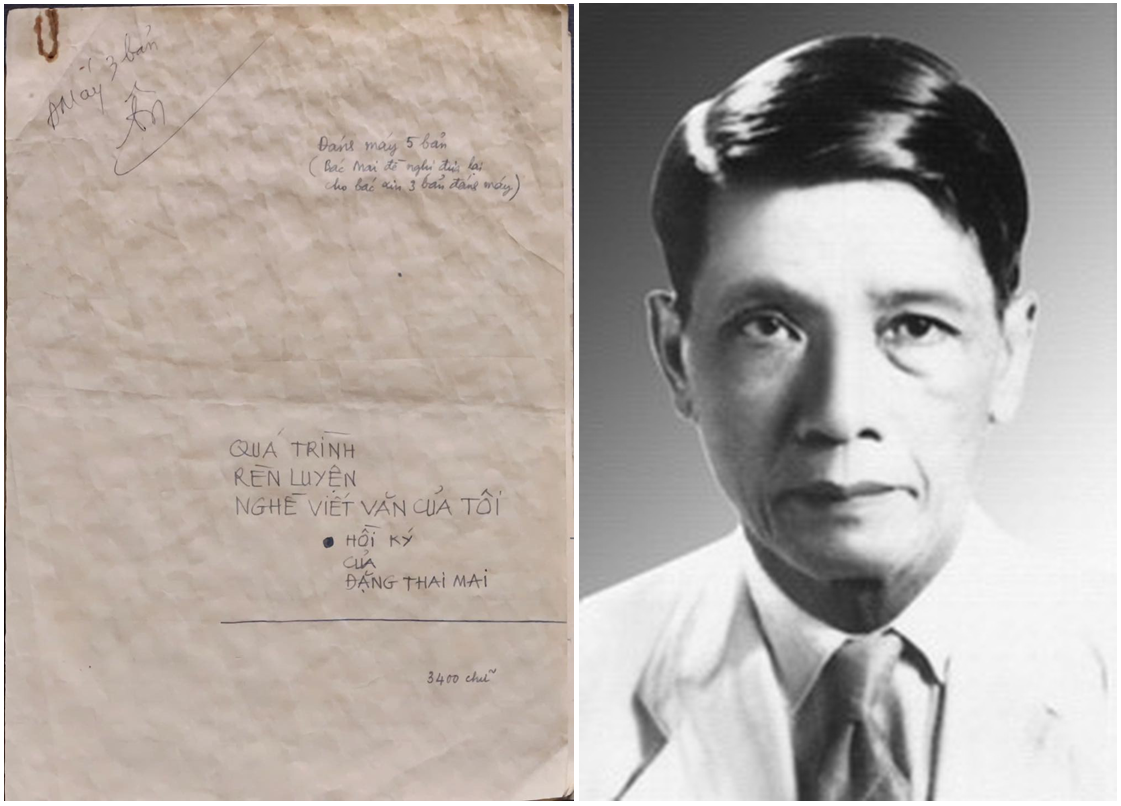 Đ Máy 3 bản
Ân
Đánh máy 5 bản
(Bác Mai đề nghị đưa lại
cho bác xin 3 bản đánh máy)
QUÁ TRÌNH
RÈN LUYỆN
NGHỀ VIẾT VĂN CỦA TÔI
● HỒI KÝ
CỦA
ĐẶNG THAI MAI
3400 chữ